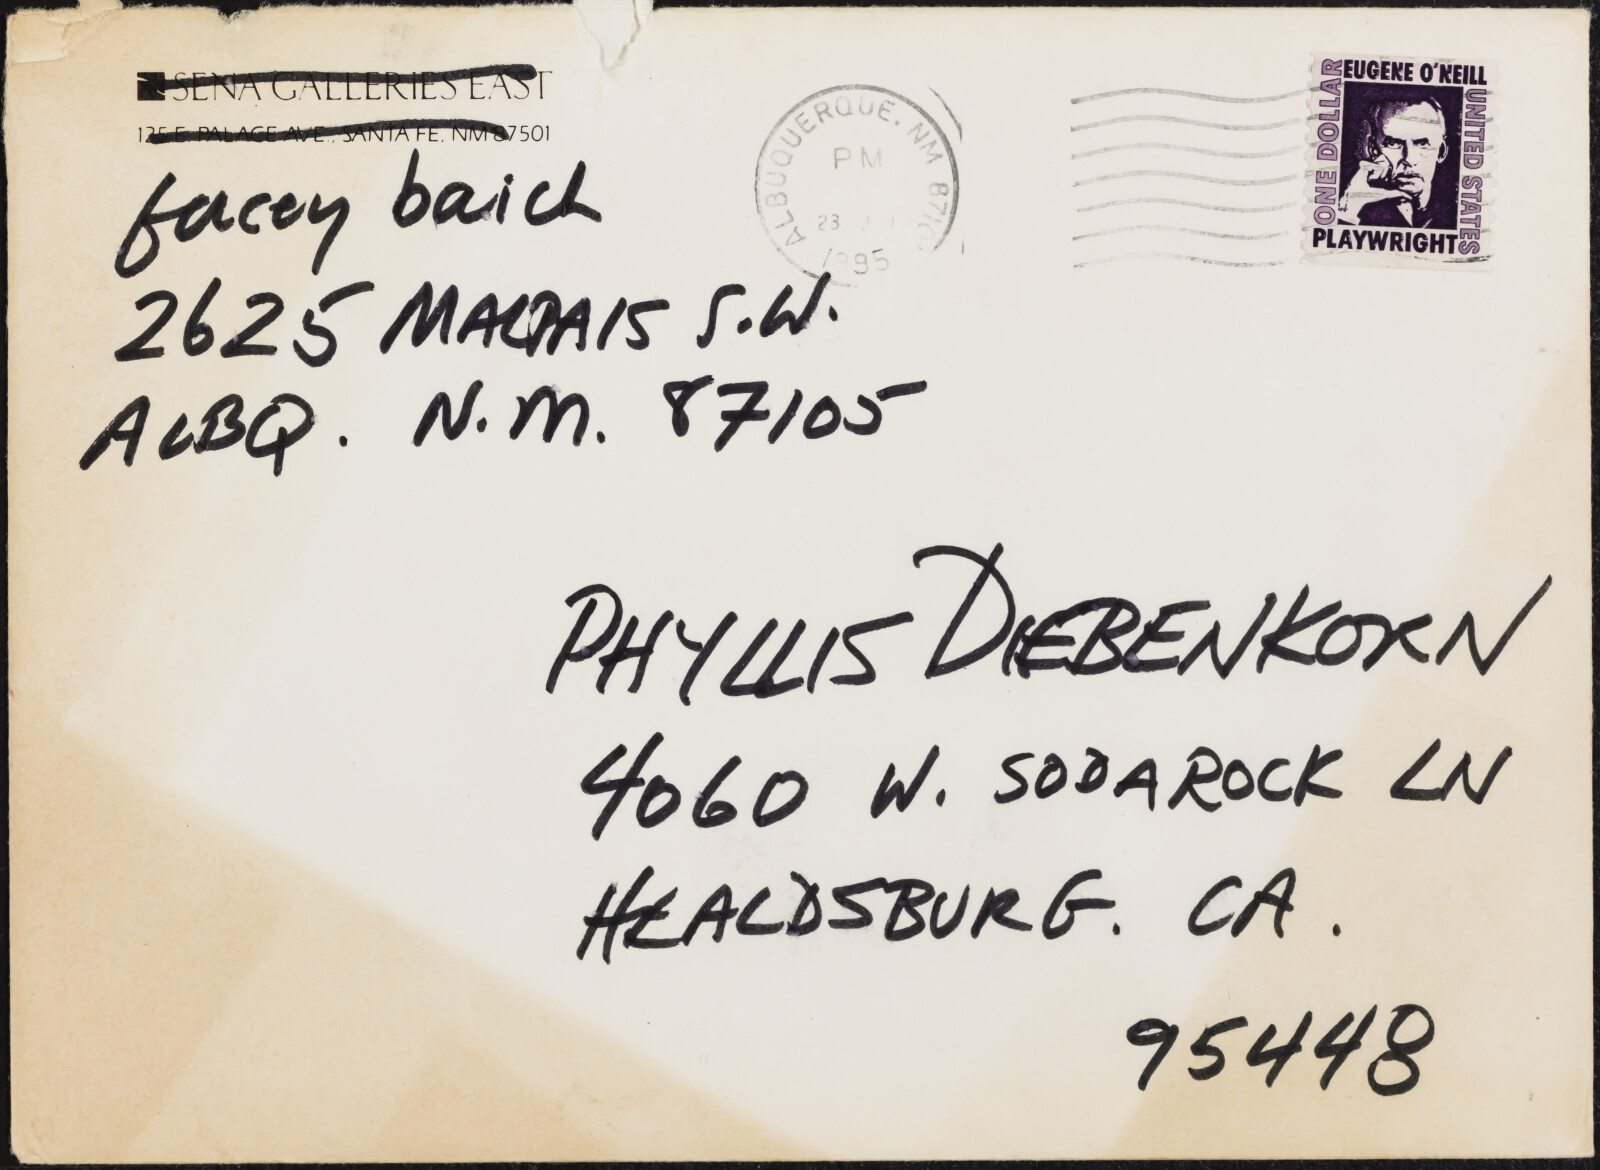 SENA GALLERIES EAST
125 E. PALACE AVE., SANTA FE, NM 87501
baich
2625 MALPAIS S.W.
ALBQ. N.M. 87105
ALBUQUERQUE, NM
PM
23
1995
EUGENE O'NEILL
ONE DOLLAR
UNITED STATES
PLAYWRIGHT
PHYLLIS DIEBENKORN
4060 W. SODAROCK LN
HEALDSBURG. CA.
95448